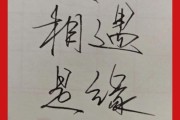 相遇
是缘